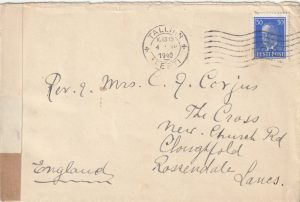 TALLINN
1940
EESTI
30
EESTI POST
Rev. & Mrs. C. J. Corjus
The Cross
New Church Rd
Cloughfold
Rossendale
England
Lancs.